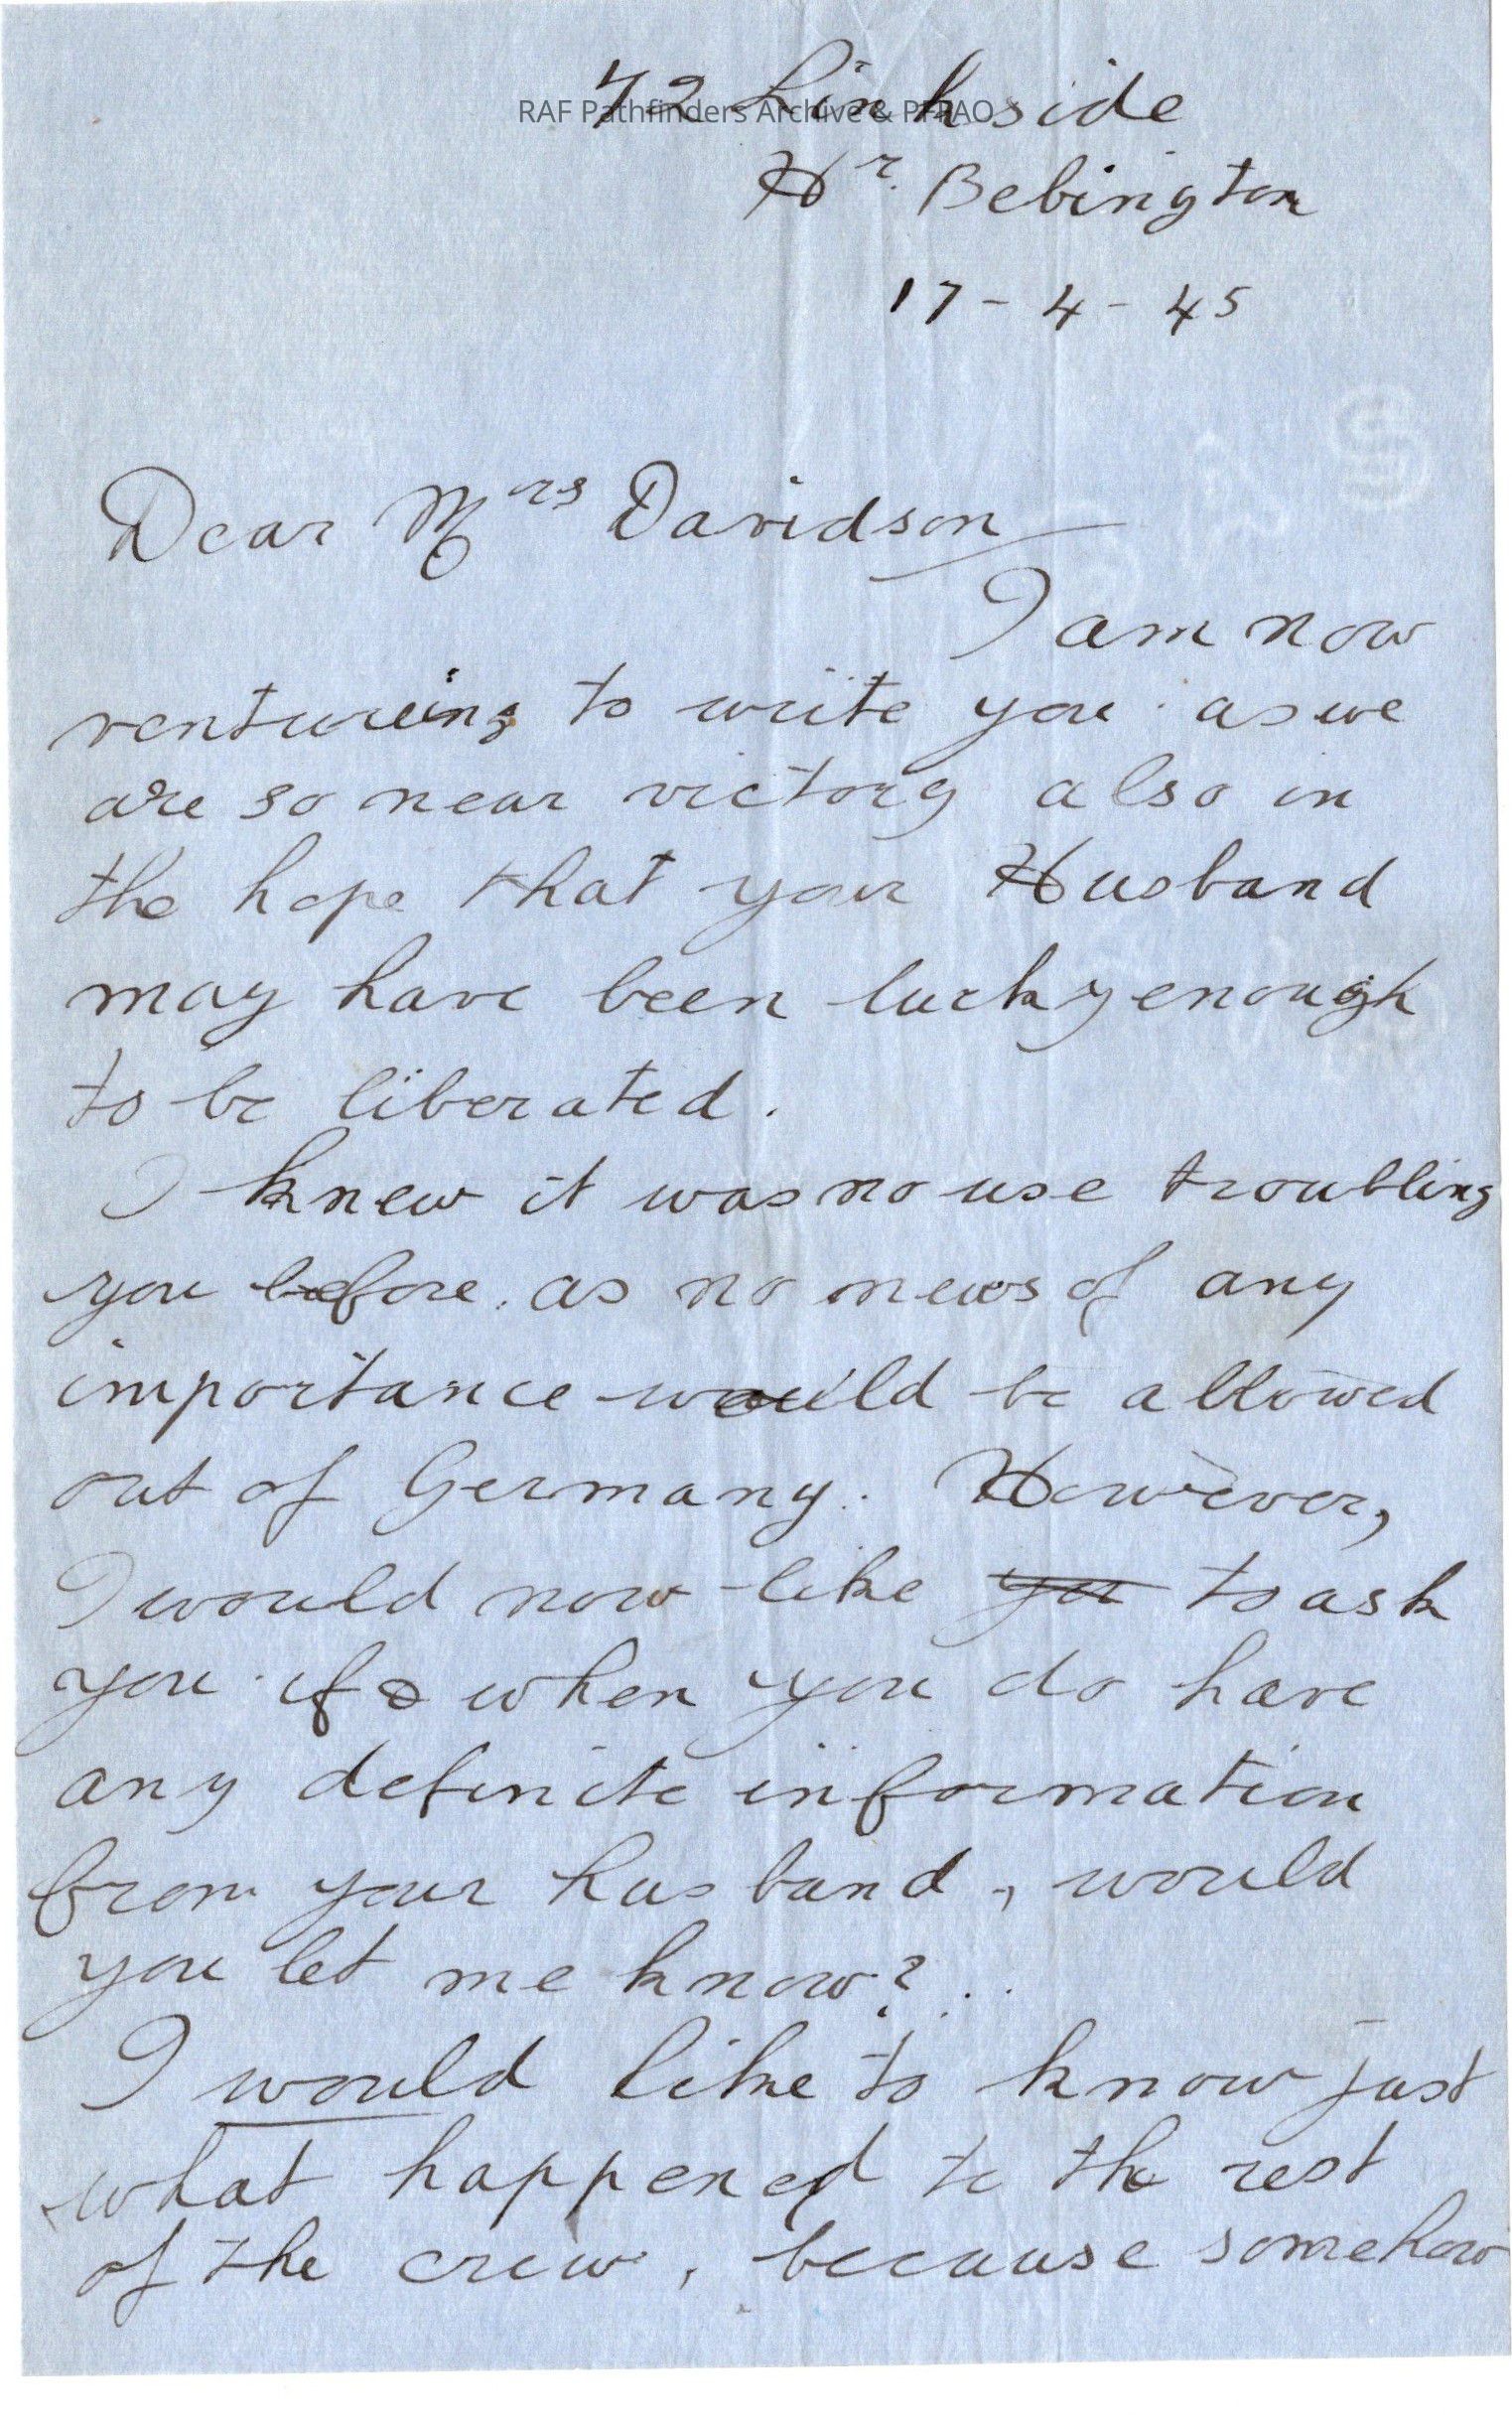 72 Linkside
RAF Pathfinders Archive & PFFAO
Hr. Bebington
17 - 4 - 45
Dear Mrs Davidson
I am now
ventureing to write you as we
are so near victory also in
the hope that your Husband
may have been lucky enough
to be liberated.
I knew it was no use troubling
you before. as no news of any
importance would be allowed
out of Germany. However,
I would now like you to ask
you if & when you do have
any definite information
from your husband, would
you let me know?
I would like to know just
what happened to the rest
of the crew, because somehow